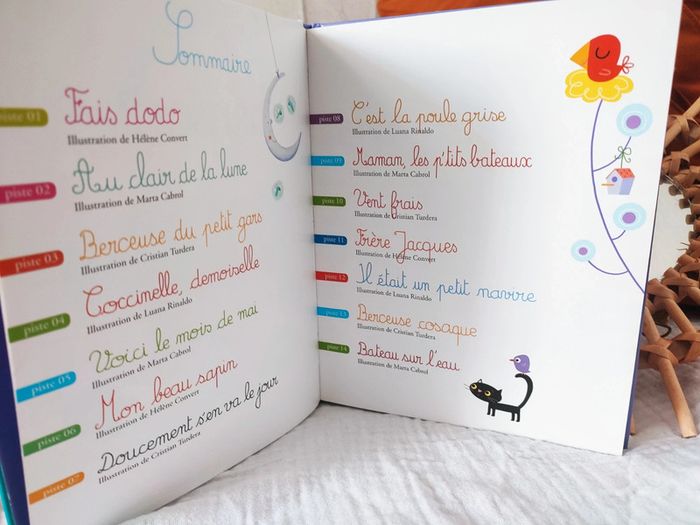 Sommaire
piste 01
Fais dodo
Illustration de Hélène Convert
piste 02
Au clair de la lune
Illustration de Marta Cabrol
piste 03
Berceuse du petit gars
Illustration de Cristian Turdera
piste 04
Coccinelle, demoiselle
Illustration de Luana Rinaldo
piste 05
Voici le mois de mai
Illustration de Marta Cabrol
piste 06
Mon beau sapin
Illustration de Hélène Convert
piste 07
Doucement s'en va le jour
Illustration de Cristian Turdera
piste 08
C'est la poule grise
Illustration de Luana Rinaldo
piste 09
Maman, les p'tits bateaux
Illustration de Marta Cabrol
piste 10
Vent frais
Illustration de Cristian Turdera
piste 11
Frère Jacques
Illustration de Hélène Convert
piste 12
Il était un petit navire
Illustration de Luana Rinaldo
piste 13
Berceuse cosaque
Illustration de Cristian Turdera
piste 14
Bateau sur l'eau
Illustration de Marta Cabrol